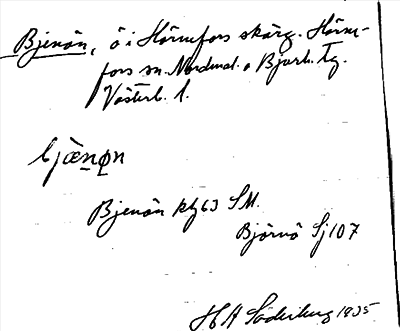 Bjenön, ö i Hörnefors skärg. Hörne-
fors sn. Nordmal. o Bjurh. tg.
Västerb. l.
bjænɷn
Bjenön kbl 63 SM.
Björnö Sj 107
H A Söderberg 1935